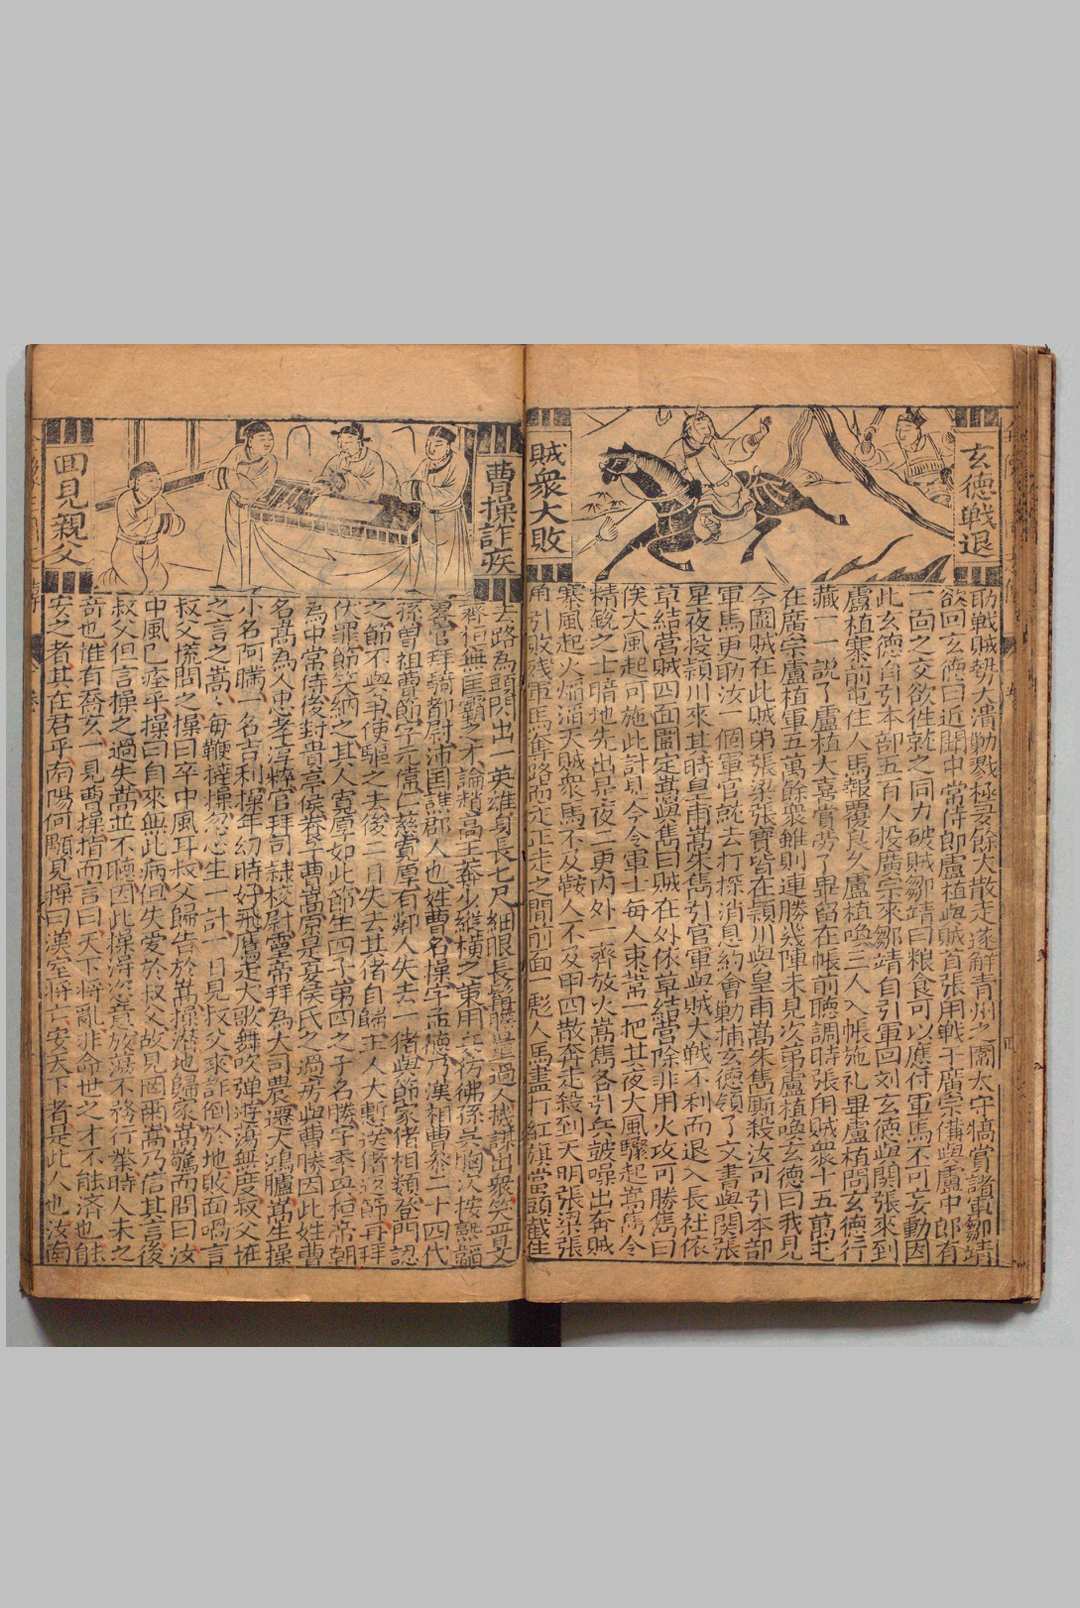 玄德戰退
賊衆大敗
助戰賊勢大潰勦戮極多餘大散走遂解青州之圍太守犒賞諸軍鄒靖
欲回玄德曰近聞中常侍郎盧植與賊首張角戰于廣宗備與盧中郎有
一面之交欲徃就之同力破賊鄒靖曰粮食可以應付軍馬不可妄動因
此玄德自引本部五百人投廣宗來鄒靖自引軍回刘玄德與関張來到
盧植寨前屯住人馬報覆良久盧植喚三人入帳施礼畢盧植問玄德行
藏一一說了盧植大喜賞勞了畢留在帳前聽調時張角賊衆十五萬屯
在廣宗盧植軍五萬餘衆雖則連勝幾陣未見次弟盧植喚玄德曰我見
今圍賊在此賊弟張梁張寶皆在潁川與皇甫嵩朱雋厮殺汝可引本部
軍馬更助汝一個軍官就去打探消息約會勦捕玄德領了文書與関張
星夜投潁川來其時皇甫嵩朱雋引官軍與賊大戰賊不利而退入長社依
草結營賊四面圍定嵩與雋曰賊在外依草結營除非用火攻可勝雋曰
俟大風起可施此計見今令軍士每人束草一把其夜大風驟起嵩雋令
精銳之士暗地先出是夜二更内外一齊放火嵩雋各引兵鼓噪出奔賊
寨風起火焰滔天賊衆馬不及鞍人不及甲四散奔走殺到天明張梁張
角引敗残軍馬奪路而走正走之間前面一彪人馬盡打紅旗當頭截住
曹操詐疾
囬見親父
去路為頭閃出一英雄身長七尺細眼長髯膽量過人機謀出衆笑晉文
齊桓無匡霸之才論趙高王莽少縱横之策用兵彷彿孫吳胸次按熟韜
畧官拜騎都尉沛国譙郡人也姓曹名操字孟德乃漢相曹參二十四代
孫曾祖曹節字元偉仁慈寛厚有鄰人失去一猪與節家猪相類登門認
之節不與爭使驅之去後二日失去其猪自歸主人大慙送猪還節再拜
伏罪節笑納之其人寛厚如此節生四子第四之子名騰字季兴桓帝朝
為中常侍後封費亭侯養子曹嵩原是夏侯氏之過房與曹騰因此姓曹
名嵩為人忠孝淳粹官拜司隷校尉靈帝拜為大司農遷大鴻臚嵩生操
小名阿瞞一名吉利操年幼時好飛鷹走犬歌舞吹弹遊蕩無度叔父徃
之言之嵩嵩毎鞭撻操忽心生一計一日見叔父來詐倒於地敗面喎言
叔父慌問之操曰卒中風耳叔父歸告於嵩操潜地歸家嵩驚而問曰汝
中風已痊乎操曰自來無此病但失爱於叔父故見罔耳嵩乃信其言後
叔父但言操之過失嵩並不聽因此操得恣意放蕩不務行業時人未之
竒也惟有喬玄一見曹操指而言曰天下將亂非命世之才不能济也能
安之者其在君乎南陽何顒見操曰漢室將亡安天下者是此人也汝南